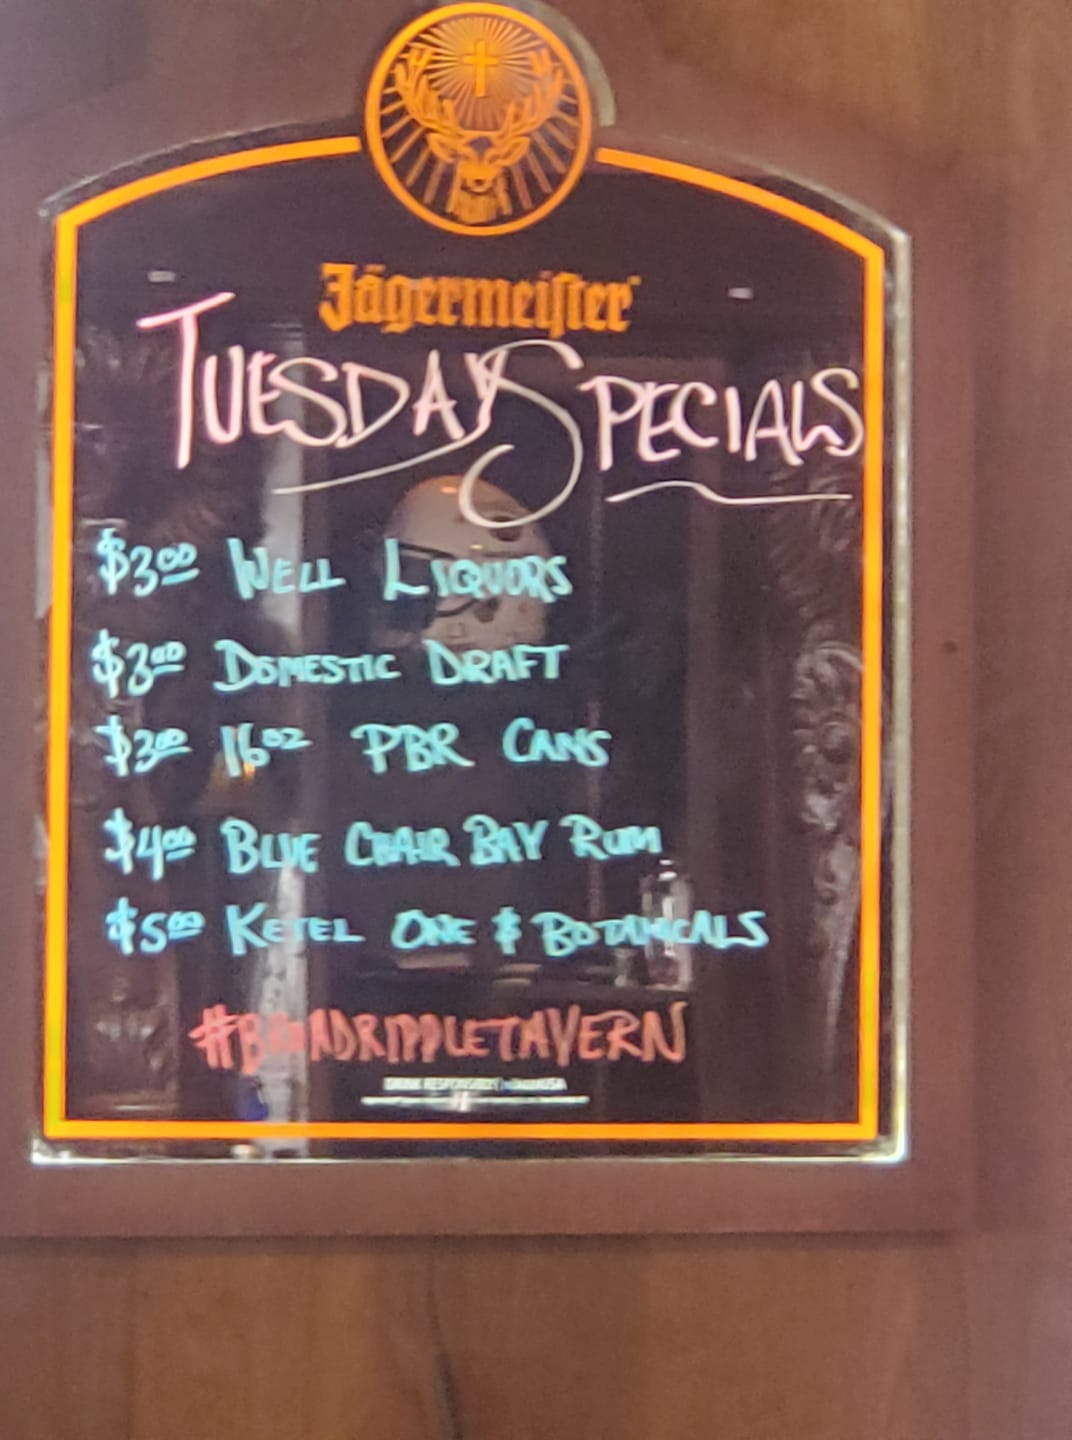 Jägermeister
TUESDAY SPECIALS
$3.00 WELL LIQUORS
$3.00 DOMESTIC DRAFT
$3.00 16oz PBR CANS
$4.00 BLUE CHAIR BAY RUM
$5.00 KETEL ONE & BOTANICALS
#BROADRIPPLETAVERN
DRINK RESPONSIBLY